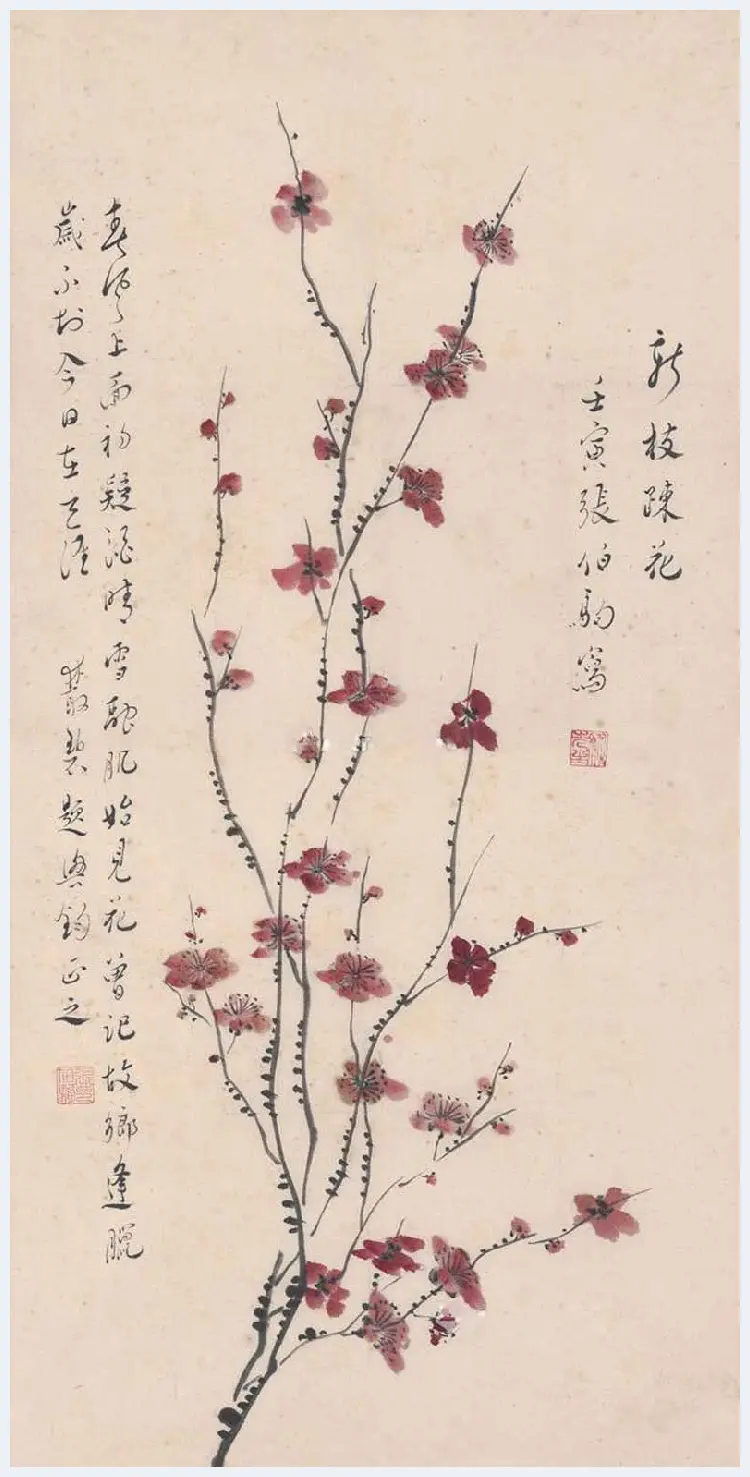 新枝疎花
壬寅張伯駒寫
春風上面初疑酒晴雪融肌始見花曾記故鄉逢臘
歲不今日在天涯 叢碧題鈞正之